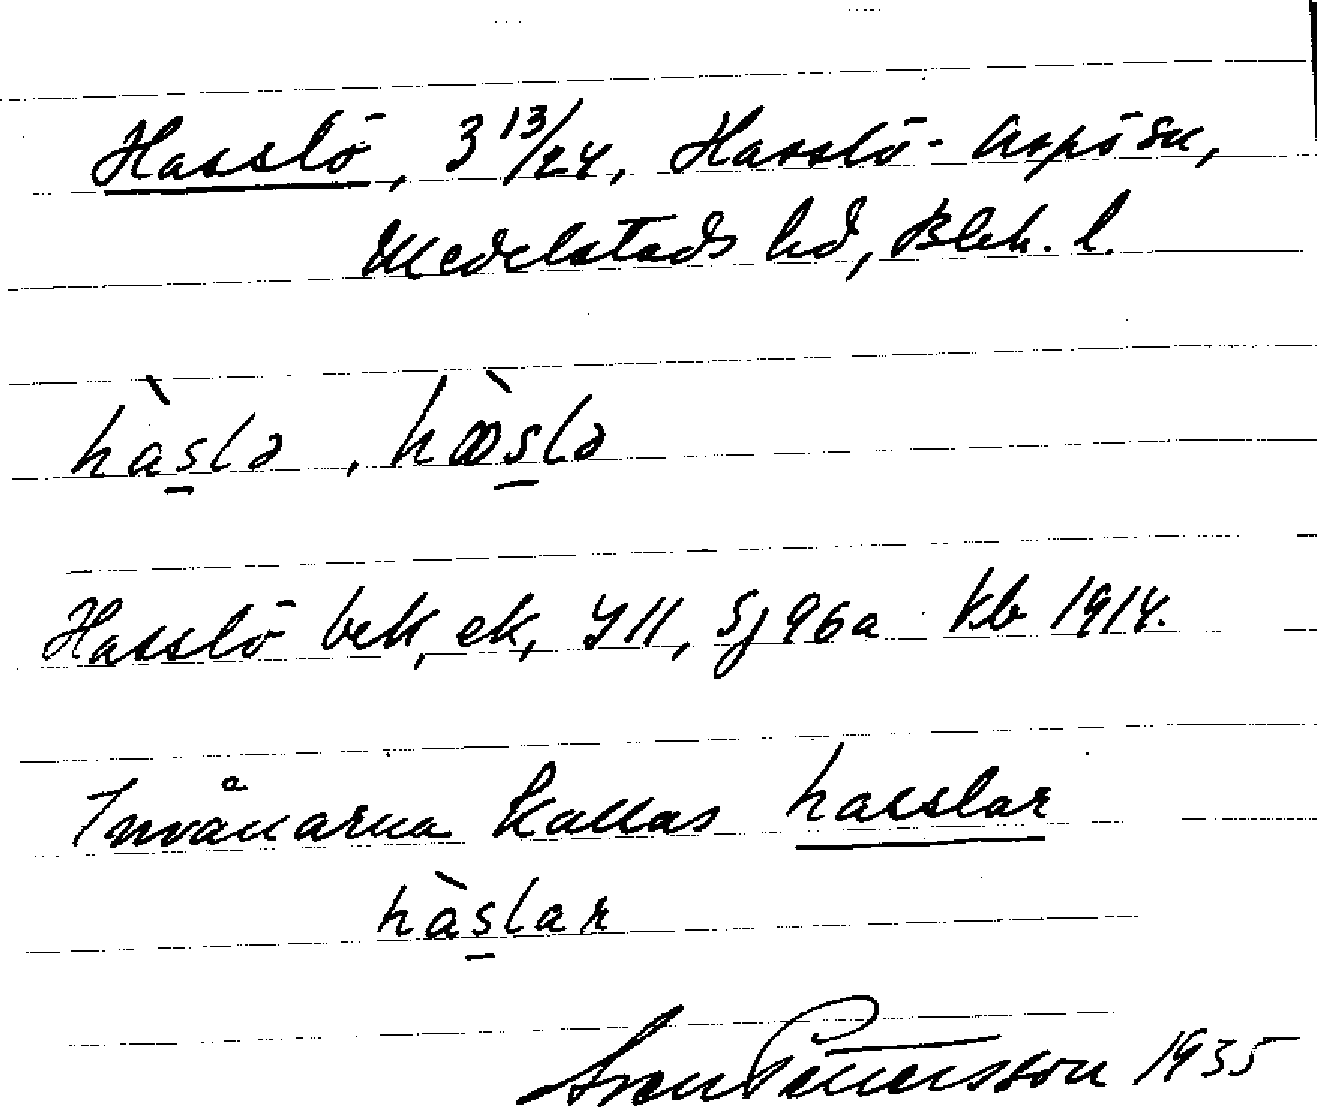 Hasslö, 3 13/24, Hasslö-Aspö sn,
Medelstads hd, Blek. l.
hàs̲lə, hɑ̀ɑs̲lə
Hasslö bek, ek, JII, Sj 96a kb 1914.
Invånarna kallas hasslar
hàs̲lar
Sven Pettersson 1935